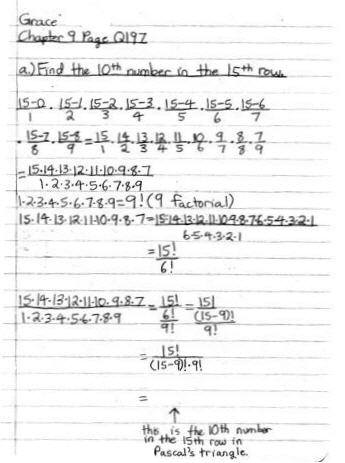 Grace
Chapter 9 Page Q197
a) Find the 10th number in the 15th row.
15-0/1 · 15-1/2 · 15-2/3 · 15-3/4 · 15-4/5 · 15-5/6 · 15-6/7
· 15-7/8 · 15-8/9 = 15/1 · 14/2 · 13/3 · 12/4 · 11/5 · 10/6 · 9/7 · 8/8 · 7/9
= 15·14·13·12·11·10·9·8·7 / 1·2·3·4·5·6·7·8·9
1·2·3·4·5·6·7·8·9=9! (9 factorial)
15·14·13·12·11·10·9·8·7 = 15·14·13·12·11·10·9·8·7·6·5·4·3·2·1 / 6·5·4·3·2·1
= 15! / 6!
15·14·13·12·11·10·9·8·7 / 1·2·3·4·5·6·7·8·9 = 15!/6! / 9! = 15!/(15-9)! / 9!
= 15! / (15-9)!·9!
=
↑
this is the 10th number
in the 15th row in
Pascal's triangle.